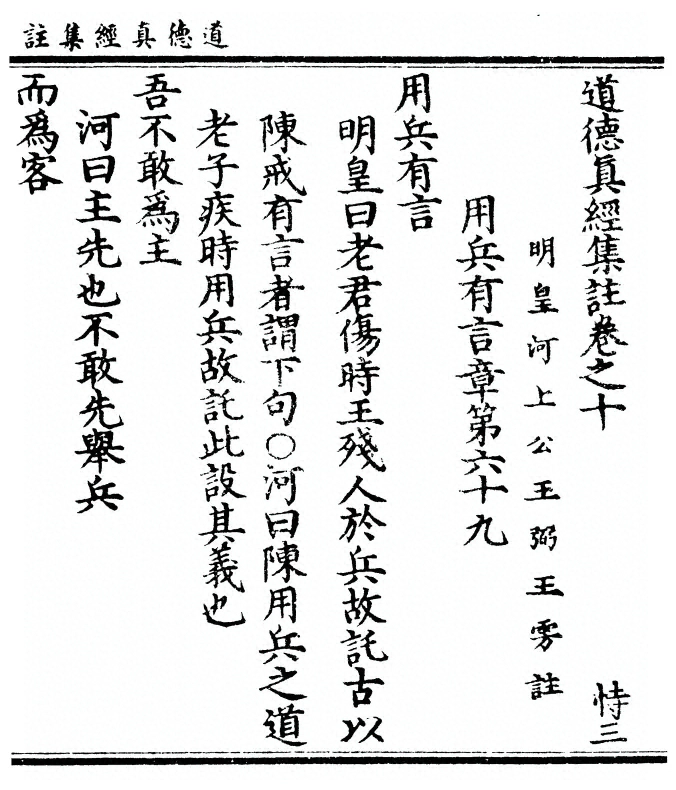 道德真經集註
道德眞經集註卷之十
恃三
明皇河上公王弼王雱註
用兵有言章第六十九
用兵有言
明皇曰老君傷時王殘人於兵故託古以
陳戒有言者謂下句○河曰陳用兵之道
老子疾時用兵故託此設其義也
吾不敢爲主
河曰主先也不敢先舉兵
而爲客